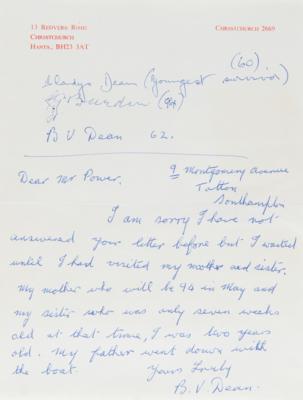 13 Redvers Road
Christchurch
Hants, BH23 3AT
Christchurch 2669
(60)
Gladys Dean (youngest survivor)
(94)
B V Dean 62.
9 Montgomery Avenue
Dear Mr Power.
Totton
Southampton
I am sorry I have not
answered your letter before but I waited
until I had visited my mother and sister.
My mother who will be 94 in May and
my sister who was only seven weeks
old at that time, I was two years
old. My father went down with
the boat.
Yours
B. V. Dean.